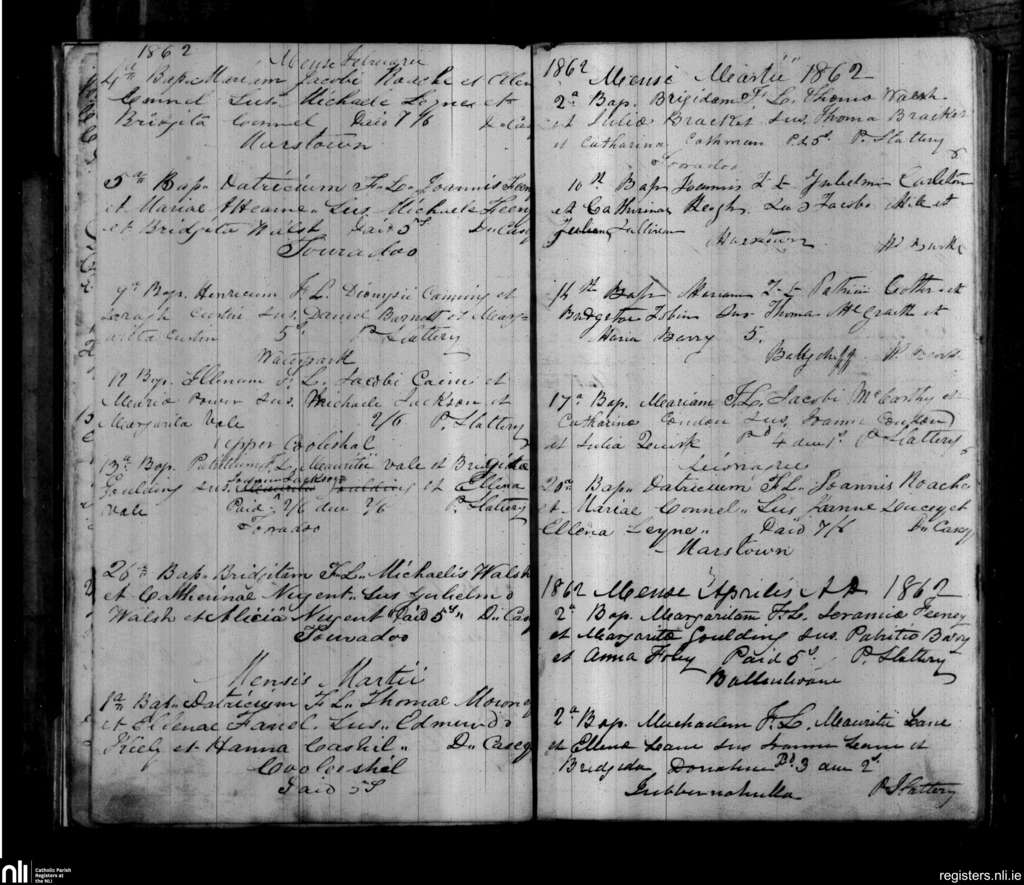 1862
Mense Februarii
4a Bap. Mariam Jacobi Roache et Elen
Connel Sus. Michaele Leyne et
Bridgita Connel Paid 7/6 D Casey
Marstown
5a Bap. Patricium F. L. Joannis Feen
et Mariae AHearne Sus Michaele Feeny
et Bridgita Walsh Paid 5s D. Casey
Touradoo
7a Bap. Henricum F. L. Dionysii Canning et
Sarah Curtin Sus. Daniel Barnet et Mar-
arita Curtin 5s P Slattery
12 Bap. Ellenam F. L. Jacobi Caine et
Maria Power Sus. Michaele Jackson et
Margarita Vale 2/6 P. Slattery
Upper Coolishal
13a Bap. F. L. Mauritii Vale et Bridgita
Goulding Sus. Joanne Jackson et Ellena
Vale Paid 2/6 due 2/6 P. Slattery
Toradoo
26a Bap. Bridgitam F. L. Michaelis Walsh
et Catherinae Nugent Sus Gulielmo
Walsh et Alicia Nugent Paid 5s D. Casey
Touradoo
Mensis Martii
1a Bap. Patricium F. L. Thomae
et Ellenae Sus. Edmundo
Kiely et Hanna Cashil D. Casey
Cooleeshil
Paid 5s
1862 Mense Martii 1862
2a Bap. Brigidam F. L. Thoma Walsh
et Julia Bracket Sus. Thoma Bracket
et Catharina Cashman Pd 5s P. Slattery
Toradoo
10th Bap Joannis F L Gulielmi Carleton
et Catherinae Keogh Sus Jacobo et
Juliana Sullivan
Marstown
14th Bap Mariam F L Patricii et
Bridgetae Tobin Sus Thoma McGrath et
Maria Barry 5.
Ballyduff
17a Bap. Mariam F. L. Jacobi McCarthy et
Catharina Condon Sus. Joanne Condon
et Julia Quirk Pd 4 due 1s P. Slattery
20a Bap. Patricium F. L. Joannis Roache
et Mariae Connel Sus Joanne Loucey et
Ellena Leyne Paid 7/6 D. Casey
Marstown
1862 Mense Aprilis AD 1862
2a Bap. Margaritam F. L. Feeney
et Margarita Goulding Sus. Patritio Barry
et Anna Foley Paid 5s. P. Slattery
2a Bap. Michaelem F. L. Mauritii Lane
et Ellena Leane Sus Joanne Leane et
Bridgida Donahue Pd 3 due 2s.
P Slattery
nli Catholic Parish
Registers at
the NLI
registers.nli.ie